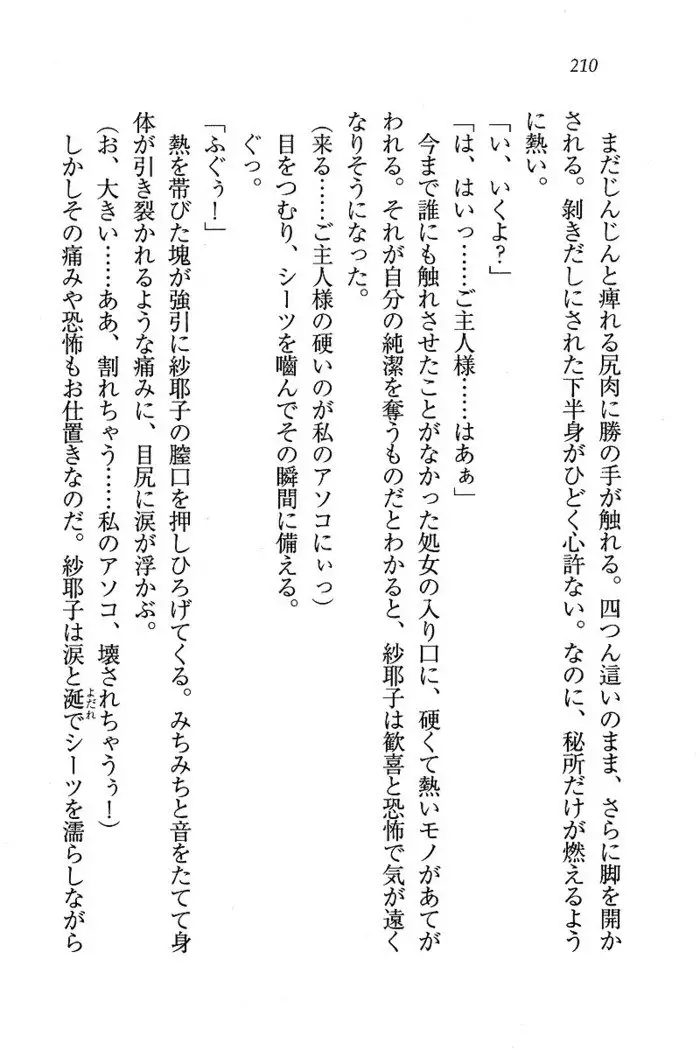 210
まだじんじんと痺れる尻肉に勝の手が触れる。四つん這いのまま、さらに脚を開か
される。剝きだしにされた下半身がひどく心許ない。なのに、秘所だけが燃えるよう
に熱い。
「い、いくよ?」
「は、はいっ……ご主人様……はあぁ」
今まで誰にも触れさせたことがなかった処女の入り口に、硬くて熱いモノがあてが
われる。それが自分の純潔を奪うものだとわかると、紗耶子は歓喜と恐怖で気が遠く
なりそうになった。
(来る……ご主人様の硬いのが私のアソコにぃっ)
目をつむり、シーツを嚙んでその瞬間に備える。
ぐっ。
「ふぐぅ!」
熱を帯びた塊が強引に紗耶子の膣口を押しひろげてくる。みちみちと音をたてて身
体が引き裂かれるような痛みに、目尻に涙が浮かぶ。
(お、大きい……ああ、割れちゃう……私のアソコ、壊されちゃうぅ!)
しかしその痛みや恐怖もお仕置きなのだ。紗耶子は涙と涎でシーツを濡らしながら
よだれ